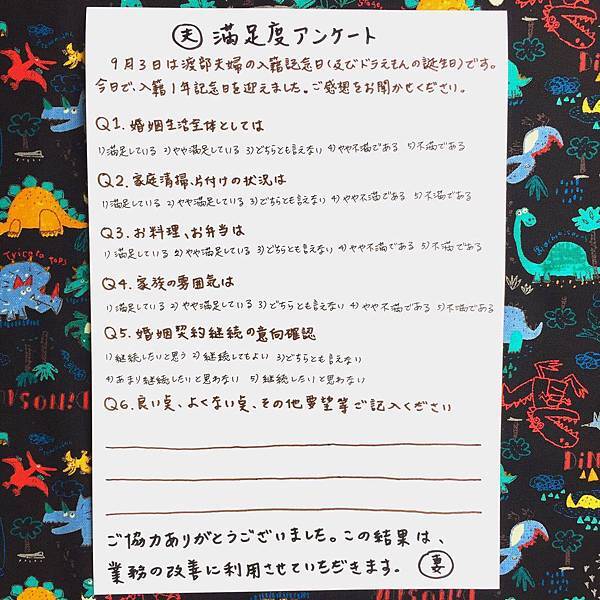 夫 満足度アンケート
9月3日は渡部夫婦の入籍記念日(及びドラえもんの誕生日)です。
今日で、入籍1年記念日を迎えました。ご感想をお聞かせください。
Q1.婚姻生活全体としては
1)満足している 2)やや満足している 3)どちらとも言えない 4)やや不満である 5)不満である
Q2.家庭清掃、片付けの状況は
1)満足している 2)やや満足している 3)どちらとも言えない 4)やや不満である 5)不満である
Q3.お料理、お弁当は
1)満足している 2)やや満足している 3)どちらとも言えない 4)やや不満である 5)不満である
Q4.家族の雰囲気は
1)満足している 2)やや満足している 3)どちらとも言えない 4)やや不満である 5)不満である
Q5.婚姻契約継続の意向確認
1)継続したいと思う 2)継続してもよい 3)どちらとも言えない
4)あまり継続したいと思わない 5)継続したいと思わない
Q6.良い点、よくない点、その他要望等ご記入ください
ご協力ありがとうございました。この結果は、
業務の改善に利用させていただきます。 妻
Tricera tops
DiNOSA
DiN